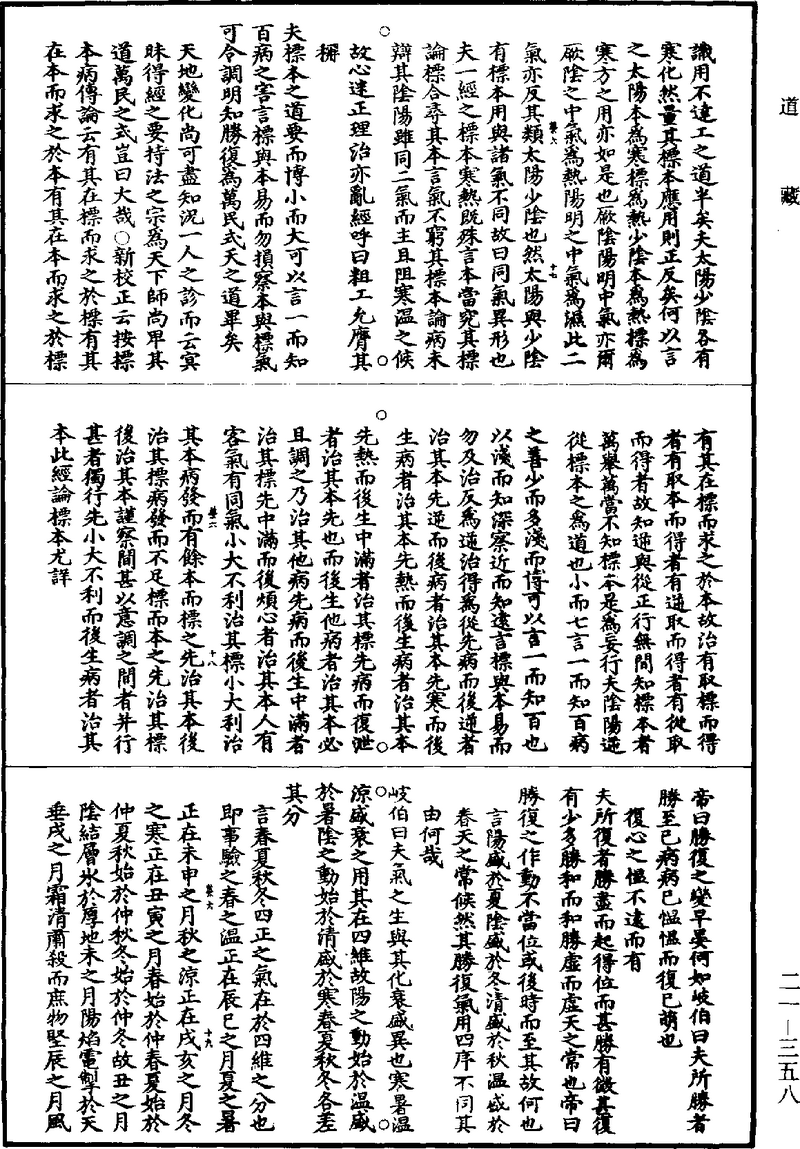 道藏
識用不達工之道半矣夫太陽少陰各有
寒化然量其標本應用則正反矣何以言
之太陽本爲寒標爲熱少陰本爲熱標爲
寒方之用亦如是也厥陰陽明中氣亦爾
厥陰之中氣爲熱陽明之中氣爲濕此二
氣亦反其類太陽少陰也然太陽與少陰
有標本用與諸氣不同故曰同氣異形也
夫一經之標本寒熱既殊言本當究其標
論標合尋其本言氣不窮其標本論病未
辯其陰陽雖同二氣而主且阻寒溫之候
故心迷正理治亦亂經呼曰粗工允膺其
稱
夫標本之道要而博小而大可以言一而知
百病之害言標與本易而勿損察本與標氣
可令調明知勝復爲萬民式天之道畢矣
天地變化尚可盡知況一人之診而云冥
昧得經之要持法之宗爲天下師尚卑其
道萬民之式豈曰大哉○新校正云按標
本病傳論云有其在標而求之於標有其
在本而求之於本有其在本而求之於標
有其在標而求之於本故治有取標而得
者有取本而得者有逆取而得者有從取
而得者故知逆與從正行無問知標本者
萬舉萬當不知標本是爲妄行夫陰陽逆
從標本之爲道也小而大言一而知百病
之害少而多淺而博可以言一而知百也
以淺而知深察近而知遠言標與本易而
勿及治反爲逆治得爲從先病而後逆者
治其本先逆而後病者治其本先寒而後
生病者治其本先熱而後生病者治其本
先熱而後生中滿者治其標先病而復泄
者治其本先也而後生他病者治其本必
且調之乃治其他病先病而後生中滿者
治其標先中滿而後煩心者治其本人有
客氣有同氣小大不利治其標小大利治
其本病發而有餘本而標之先治其本後
治其標病發而不足標而本之先治其標
後治其本謹察間甚以意調之間者并行
甚者獨行先小大不利而後生病者治其
本此經論標本尤詳
帝曰勝復之變早晏何如岐伯曰夫所勝者
勝至已病病已慍慍而復已萌也
復心之慍不遠而有
夫所復者勝盡而起得位而甚勝有微甚復
有少多勝和而和勝虛而虛天之常也帝曰
勝復之作動不當位或後時而至其故何也
言陽盛於夏陰盛於冬清盛於秋溫盛於
春天之常候然其勝復氣用四序不同其
由何哉
岐伯曰夫氣之生與其化衰盛異也寒暑溫
涼盛衰之用其在四維故陽之動始於溫盛
於暑陰之動始於清盛於寒春夏秋冬各差
其分
言春夏秋冬四正之氣在於四維之分也
即事驗之春之溫正在辰巳之月夏之暑
正在未申之月秋之涼正在戌亥之月冬
之寒正在丑寅之月春始於仲春夏始於
仲夏秋始於仲秋冬始於仲冬故丑之月
陰結層冰於厚地未之月陽焰電掣於天
垂戌之月霜清肅殺而庶物堅辰之月風
二一—三五八